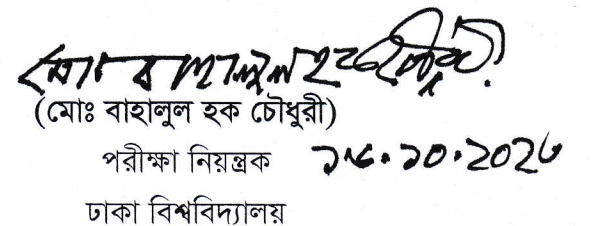 মোঃ বাহালুল হক চৌধুরী
(মোঃ বাহালুল হক চৌধুরী)
পরীক্ষা নিয়ন্ত্রক
ঢাকা বিশ্ববিদ্যালয়